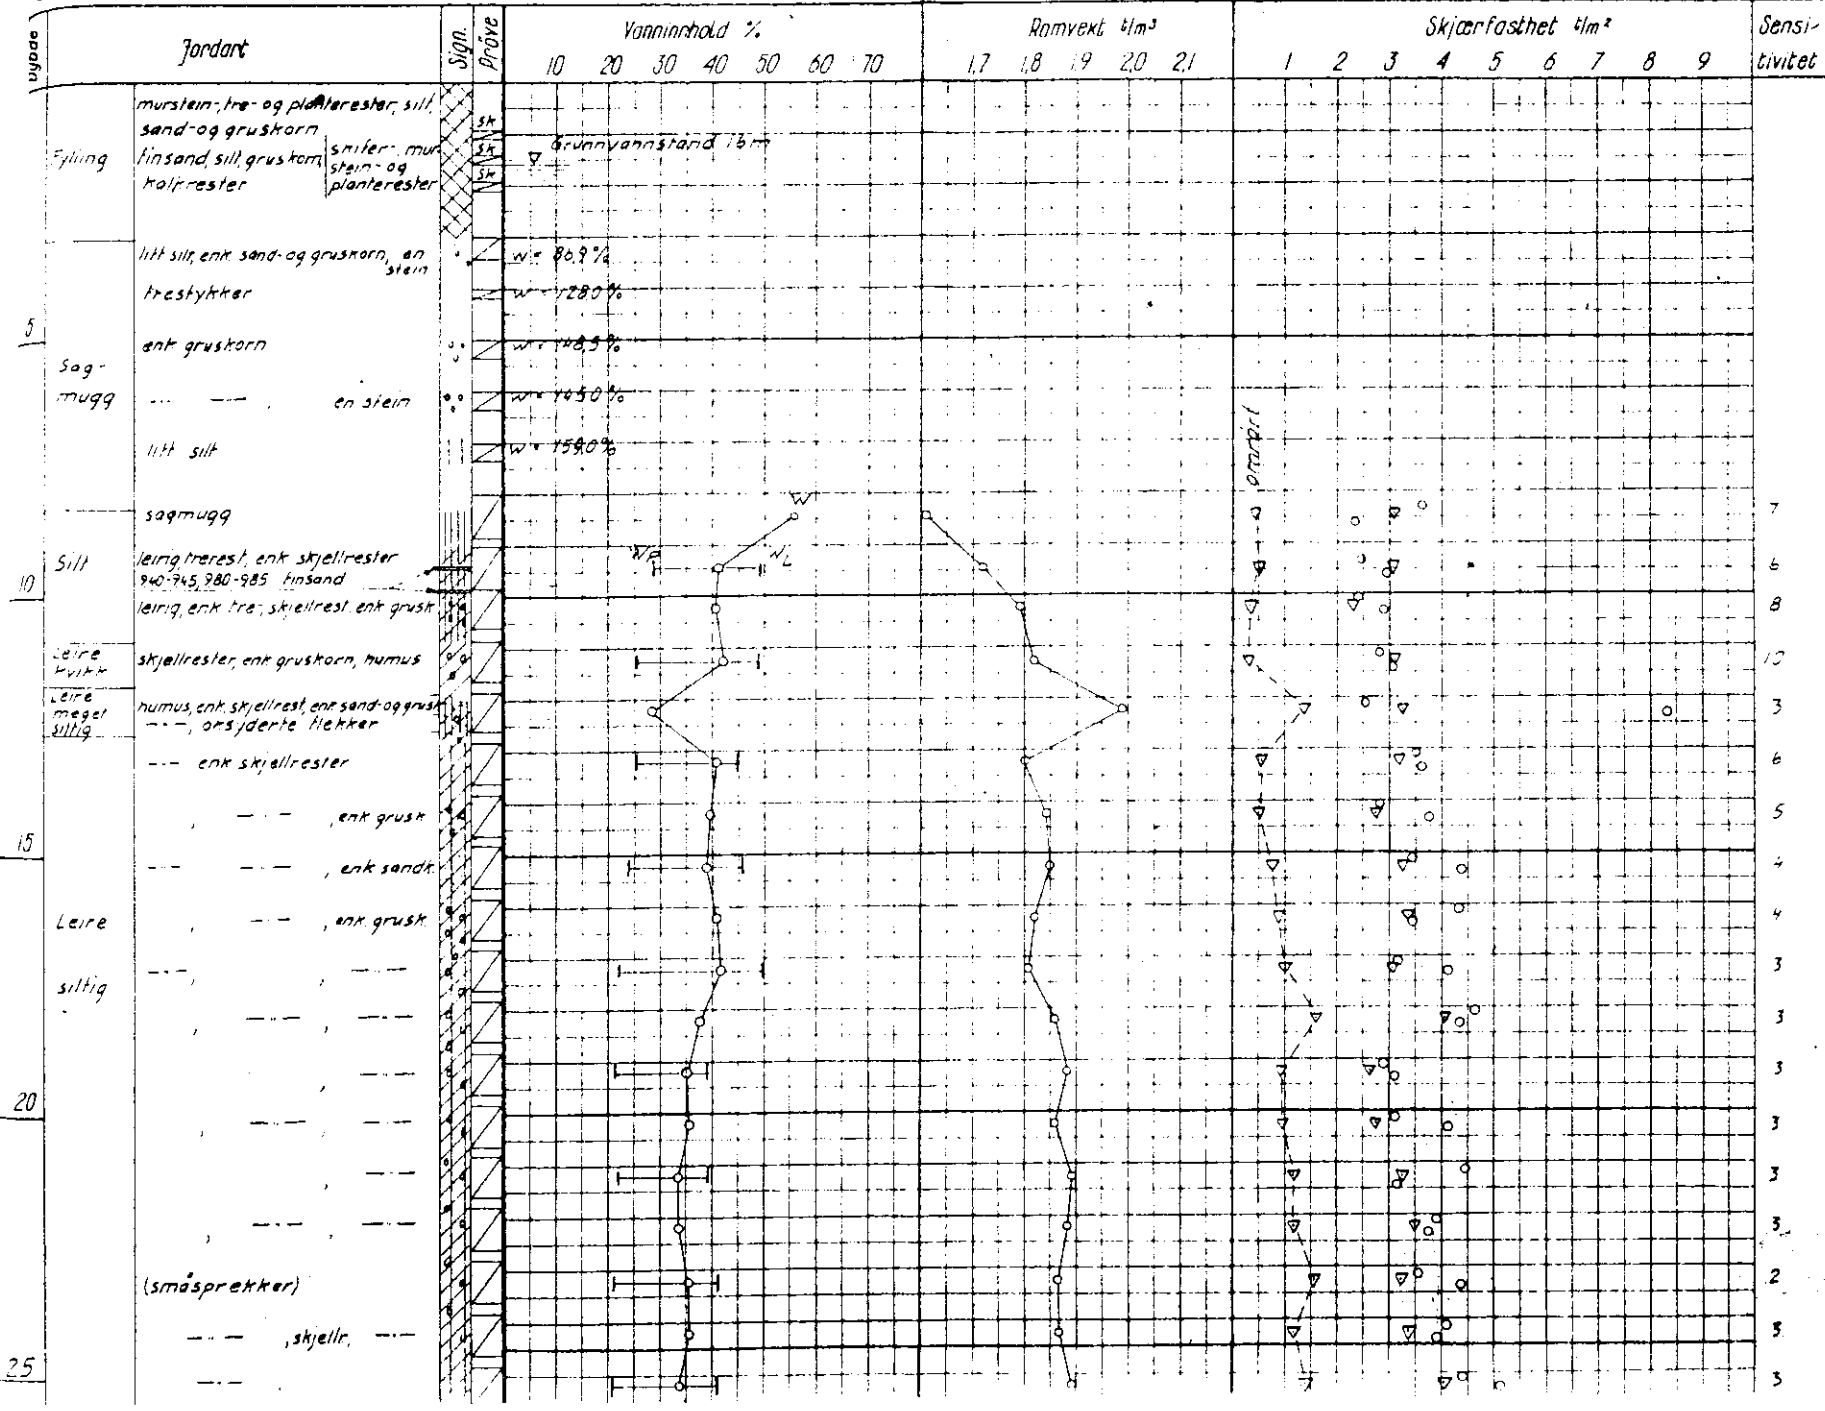 Jordart
Sign.
Prøve
Vanninnhold %
10 20 30 40 50 60 70
Romvekt t/m³
1,7 1,8 1,9 2,0 2,1
Skjærfasthet t/m²
1 2 3 4 5 6 7 8 9
Sensi-
tivitet
Fylling
murstein-, tre- og planterester, silt,
sand- og gruskorn
finsand, silt, gruskorn
skifer-, mur-
stein- og
planterester
sk
sk
sk
Grunnvannstand 1,6 m
litt silt, enk sand- og gruskorn, en
stein
w = 86,9 %
trestykker
w = 128,0 %
5
enk gruskorn
w = 148,5 %
Sag-
mugg
-·- -·- , en stein
w = 145,0 %
litt silt
w = 159,0 %
Omrørt
sagmugg
W
7
Silt
leirig, trerest, enk skjellrester
940-945, 980-985 finsand
Wp
WL
6
10
leirig, enk tre-, skjellrest, enk grusk
8
Leire
kvikk
skjellrester, enk gruskorn, humus
10
Leire
meget
siltig
humus, enk. skjellrest, enk sand- og grusk
-·-, oksyderte flekker
3
-·- enk skjellrester
6
, -·- , enk grusk
5
15
-·- -·- , enk sandk.
4
Leire
siltig
, -·- , enk grusk
4
-·- , -·-
3
, -·- , -·-
3
, -·-
3
20
, -·- , -·-
3
, -·-
3
, -·- , -·-
3
(småsprekker)
2
-·- , skjellr, -·-
3
25
-·-
3